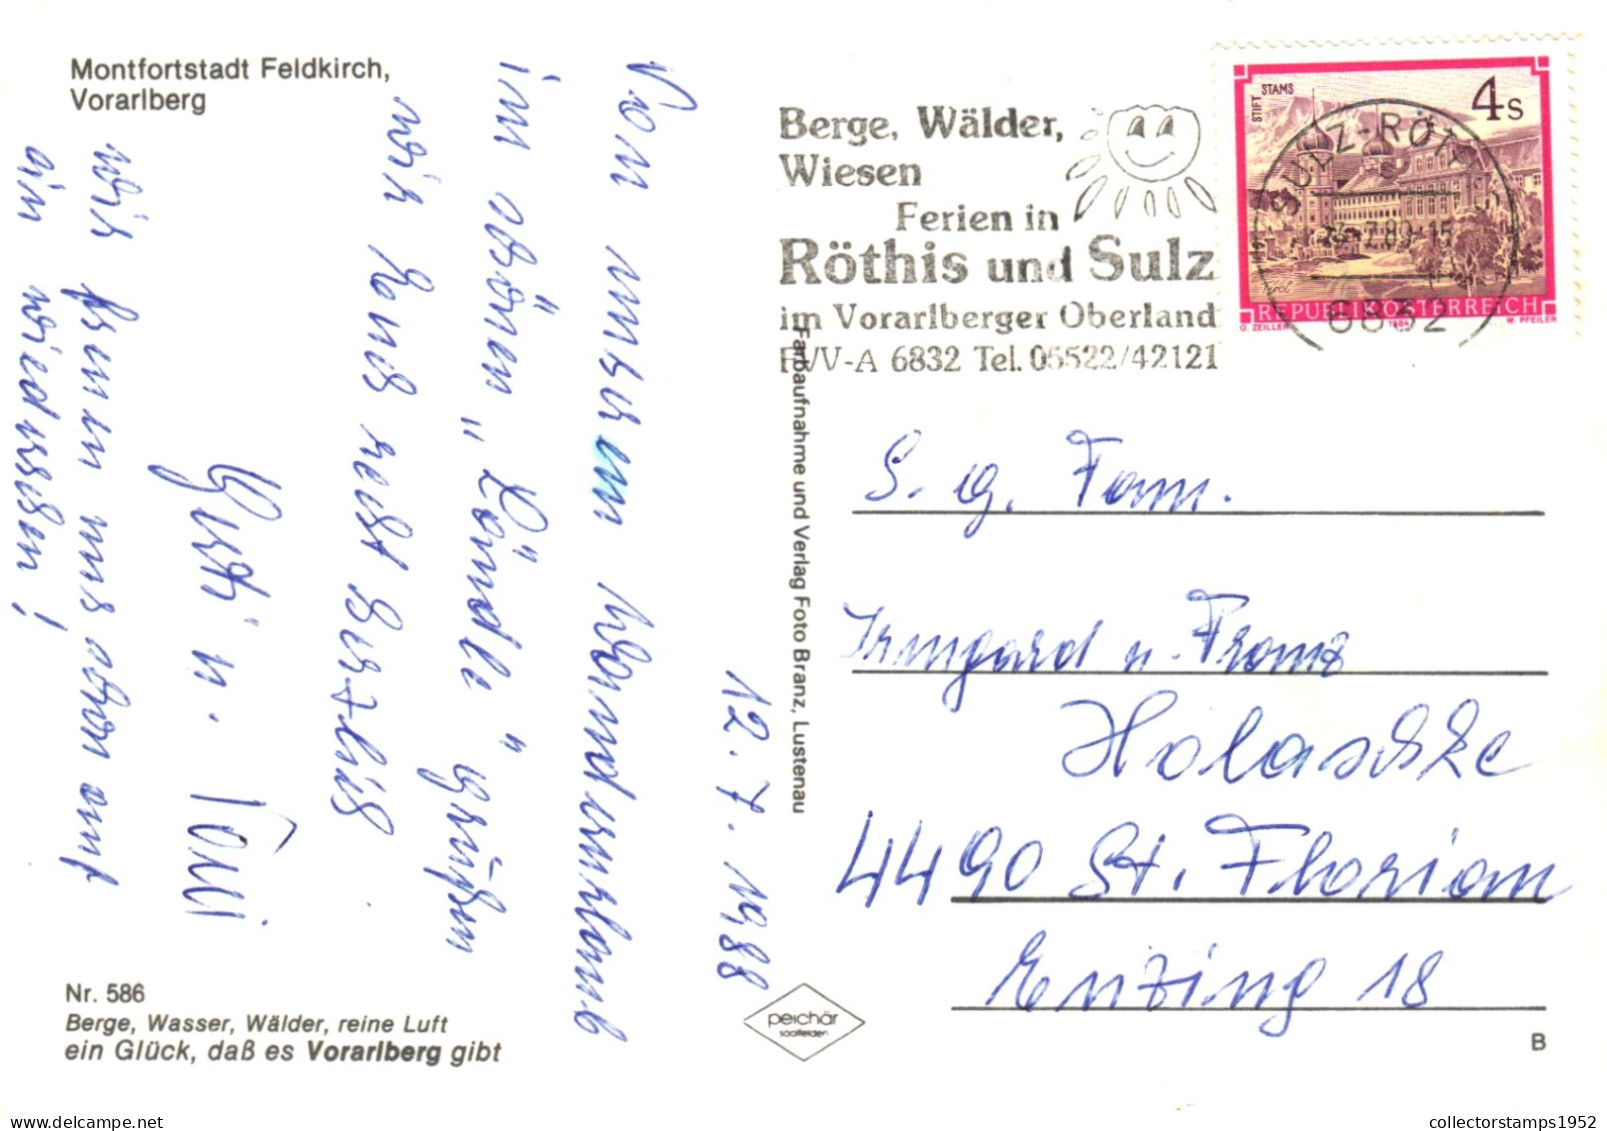 Montfortstadt Feldkirch,
Vorarlberg
12.7.1988
Von unserem Wanderurlaub
im schönen „Ländle" grüßen
wir Renis recht herzlich
Gusti u. Toni
wir freuen uns schon auf
ein wiedersehen!
Nr. 586
Berge, Wasser, Wälder, reine Luft
ein Glück, daß es Vorarlberg gibt
Farbaufnahme und Verlag Foto Branz, Lustenau
peichär
saalfelden
Berge, Wälder,
Wiesen
Ferien in
Röthis und Sulz
im Vorarlberger Oberland
FVV-A 6832 Tel. 05522/42121
STIFT STAMS
4 S
Tirol
REPUBLIK ÖSTERREICH
O. ZEILLER 1984 W. PFEILER
SULZ-RÖTHIS
6832
S. g. Fam.
Irmgard u. Franz
Holaschke
4490 St. Florian
Enzing 18
B
collectorstamps1952